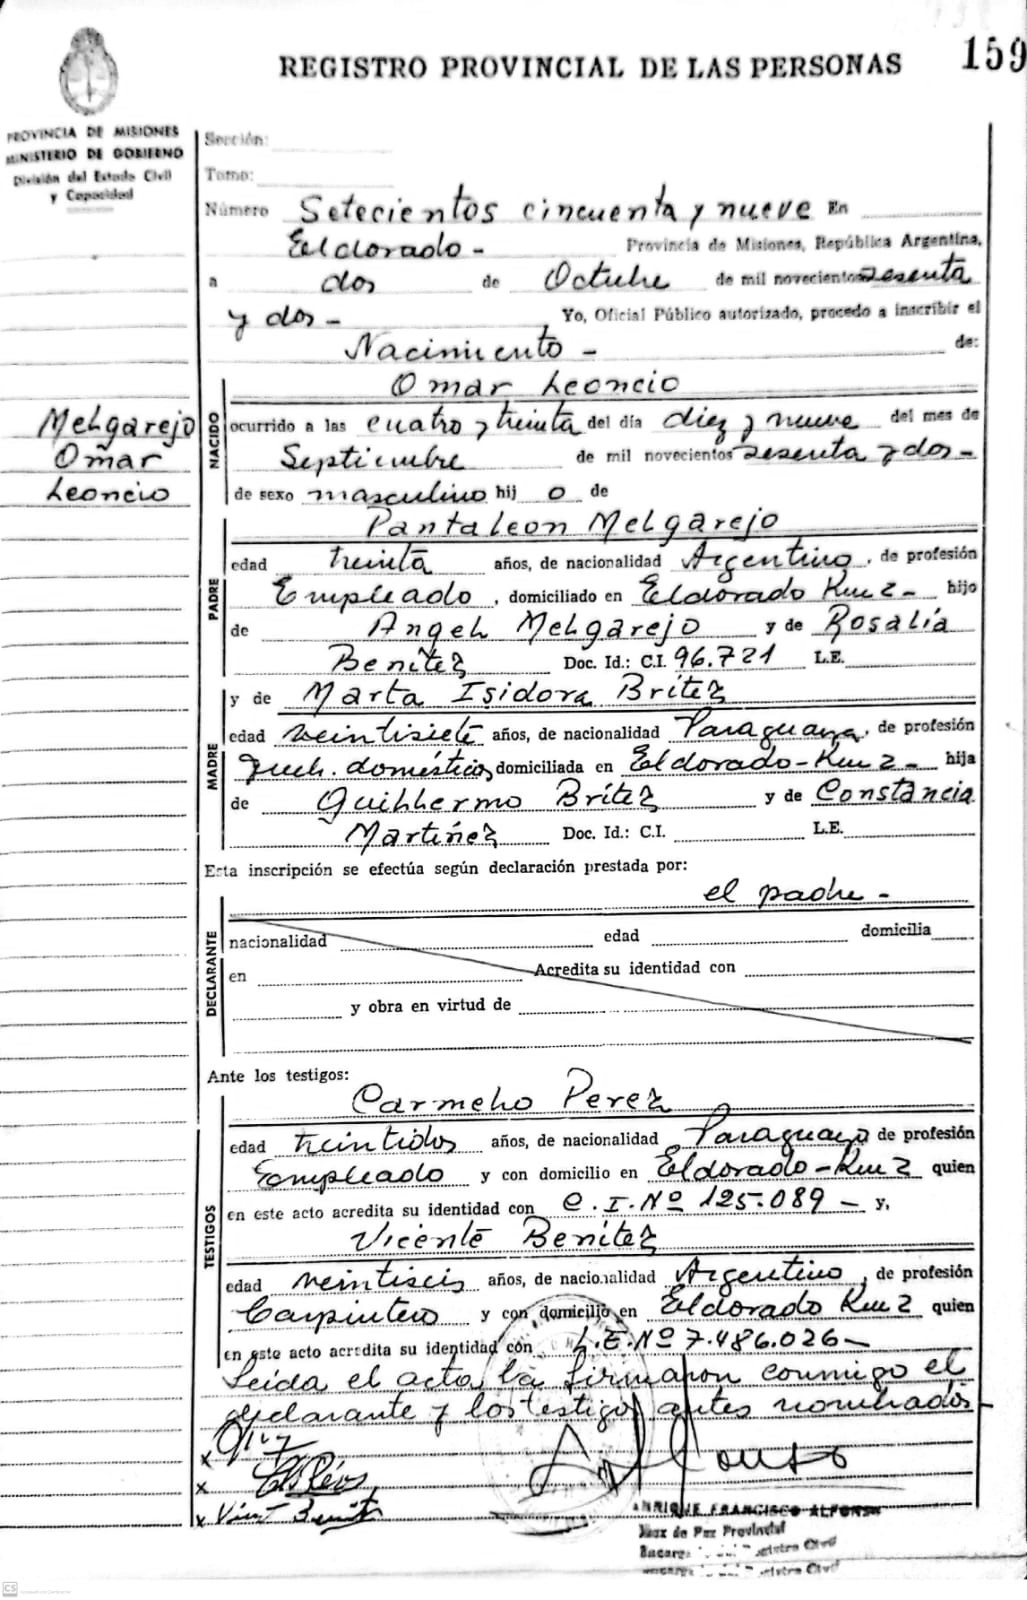 159
REGISTRO PROVINCIAL DE LAS PERSONAS
PROVINCIA DE MISIONES
MINISTERIO DE GOBIERNO
División del Estado Civil
y Capacidad
Sección:
Tomo:
Número Setecientos cincuenta y nueve En
Eldorado - Provincia de Misiones, República Argentina,
a dos de Octubre de mil novecientos sesenta
y dos - Yo, Oficial Público autorizado, procedo a inscribir el
Nacimiento - de:
Melgarejo
Omar
Leoncio
NACIDO
Omar Leoncio
ocurrido a las cuatro y treinta del día diez y nueve del mes de
Septiembre de mil novecientos sesenta y dos -
de sexo masculino hij o de
PADRE
Pantaleon Melgarejo
edad treinta años, de nacionalidad Argentino, de profesión
Empleado, domiciliado en Eldorado Km 2 - hijo
de Angel Melgarejo y de Rosalía
Benítez Doc. Id.: C.I. 96.721 L.E.
MADRE
y de Marta Isidora Brítez
edad veintisiete años, de nacionalidad Paraguaya, de profesión
domésticos, domiciliada en Eldorado - Km 2 - hija
de Guillermo Brítez y de Constancia
Martínez Doc. Id.: C.I. L.E.
Esta inscripción se efectúa según declaración prestada por:
el padre -
DECLARANTE
nacionalidad edad domicilia
en Acredita su identidad con
y obra en virtud de
Ante los testigos:
TESTIGOS
Carmelo Perez
edad treintidos años, de nacionalidad Paraguayo de profesión
Empleado y con domicilio en Eldorado - Km 2 quien
en este acto acredita su identidad con C.I. Nº 125.089 - y,
Vicente Benítez
edad veintiseis años, de nacionalidad Argentino, de profesión
Carpintero y con domicilio en Eldorado Km 2 quien
en este acto acredita su identidad con L.E. Nº 7.486.026 -
Leida el acta, la firmaron conmigo el
declarante y los testigos antes nombrados -
x
x
x Benitez
ENRIQUE FRANCISCO ALFONSO
Juez de Paz Provincial
Registro Civil
CS